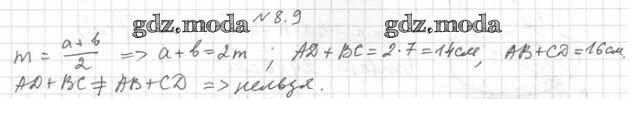 gdz.moda №8.9 gdz.moda
m = (a+b)/2 => a+b=2m ; AD+BC=2·7=14см, AB+CD=16см.
AD+BC≠AB+CD => нельзя.